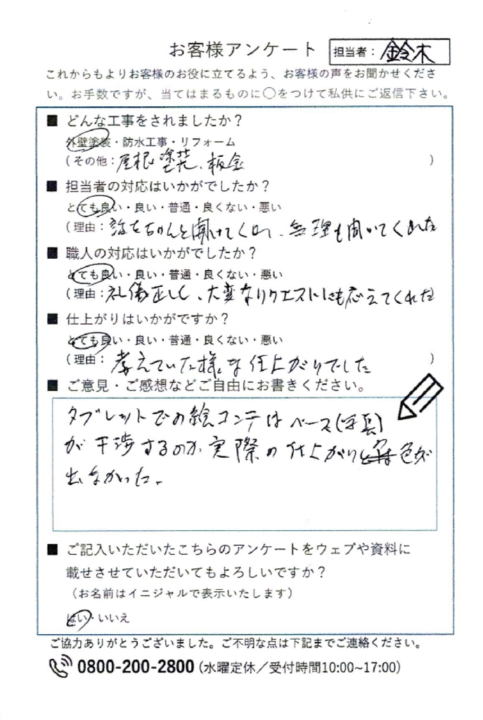 お客様アンケート 担当者: 鈴木
これからもよりお客様のお役に立てるよう、お客様の声をお聞かせくださ
い。お手数ですが、当てはまるものに〇をつけて私供にご返信下さい。
■ どんな工事をされましたか?
外壁塗装・防水工事・リフォーム
(その他: 屋根塗装、板金 )
■ 担当者の対応はいかがでしたか?
とても良い・良い・普通・良くない・悪い
(理由: 話をちゃんと聞けてくれ、無理も聞いてくれた
■ 職人の対応はいかがでしたか?
とても良い・良い・普通・良くない・悪い
(理由: 礼儀正しく、大変なリクエストにも応えてくれた
■ 仕上がりはいかがですか?
とても良い・良い・普通・良くない・悪い
(理由: 考えていた様な仕上がりでした )
■ ご意見・ご感想などご自由にお書きください。
タブレットでの絵コンテは ベース(写真)
が干渉するのか実際の仕上がり 色が
出なかった。
■ ご記入いただいたこちらのアンケートをウェブや資料に
載せさせていただいてもよろしいですか?
(お名前はイニシャルで表示いたします)
はい・いいえ
ご協力ありがとうございました。ご不明な点は下記までご連絡ください。
0800-200-2800 (水曜定休/受付時間10:00~17:00)